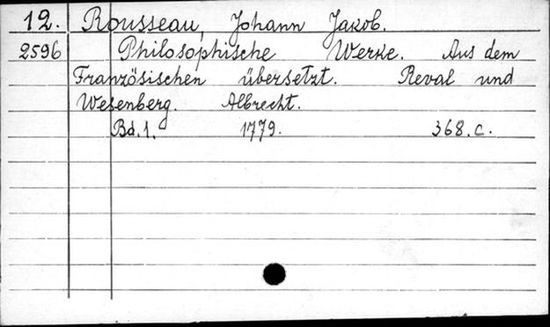 12. Rousseau, Johann Jakob.
2596 Philosophische Werke. Aus dem
Französischen übersetzt. Reval und
Wesenberg. Albrecht.
Bd. 1. 1779. 368.c.